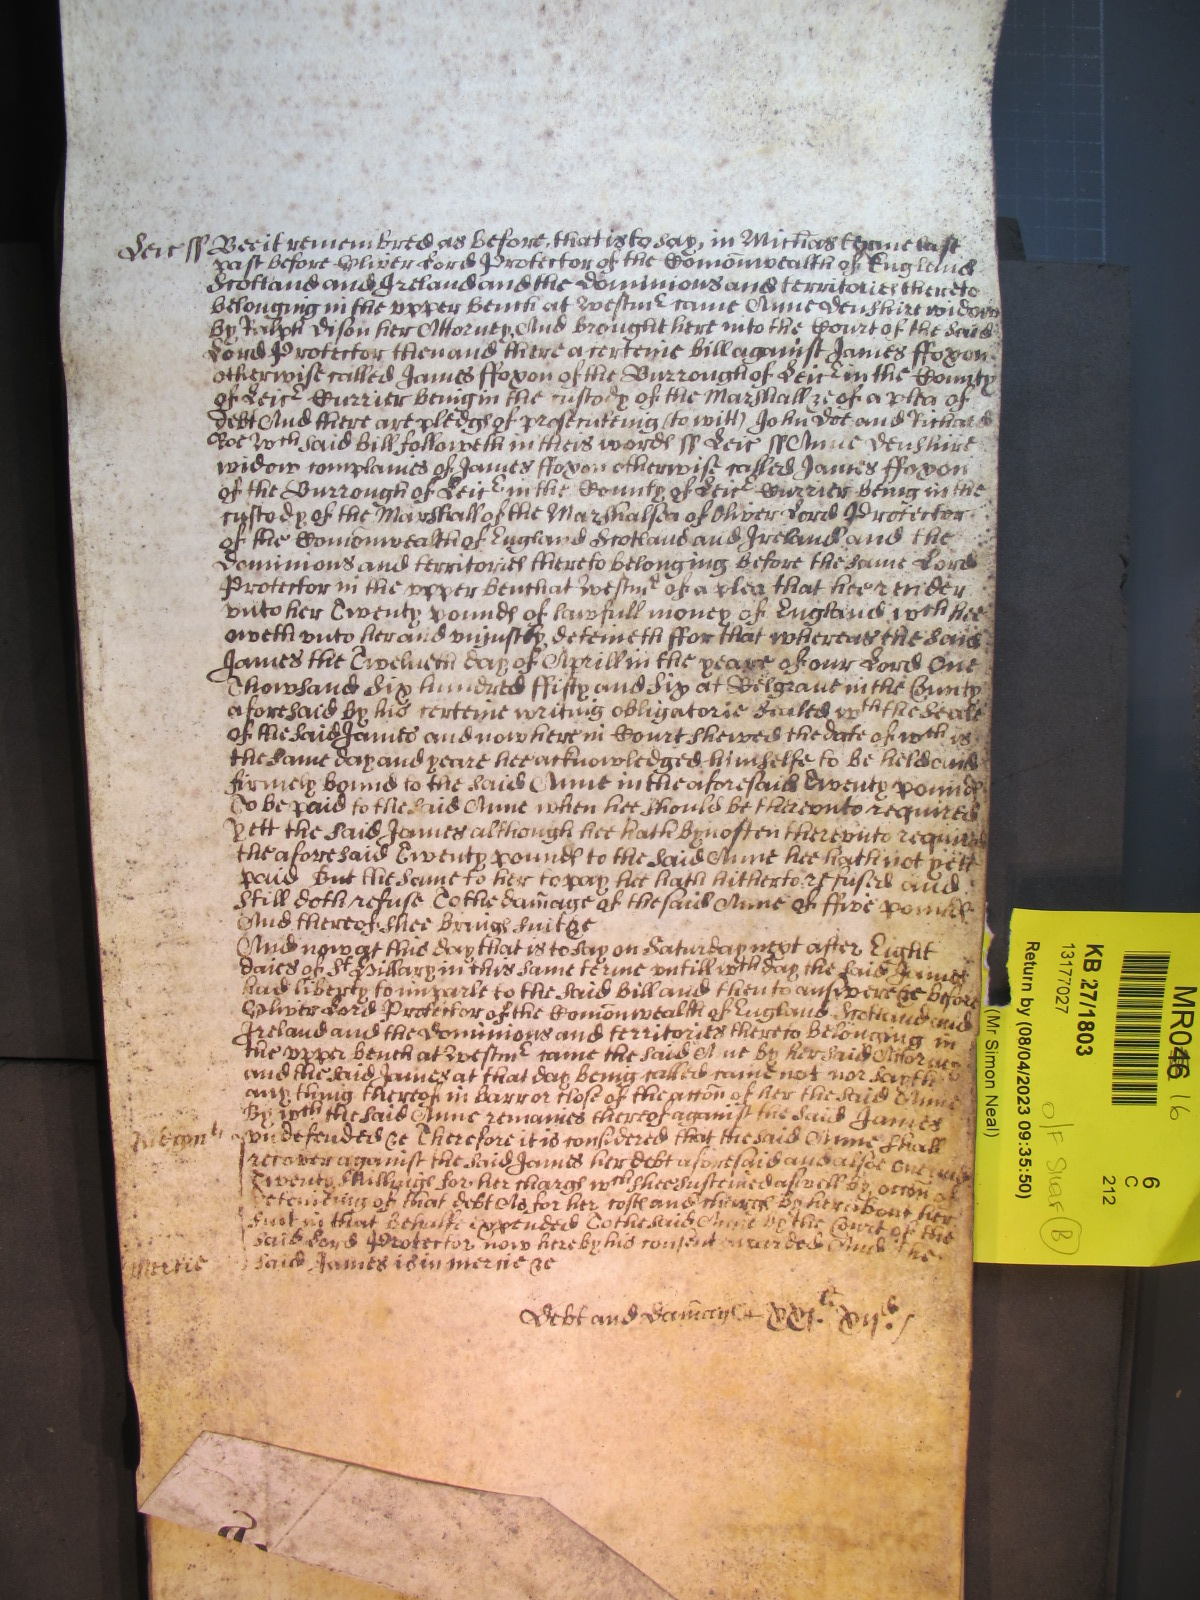 Leic ss Bee it remembred as before, that is to say, in Mich̄as terme last
past before Oliver Lord Protector of the Com̄onwealth of England
Scotland and Ireland and the dominions and territories thereto
belonging in the vpper bench at Westmr came Anne Denshire widow
By Ralph Dison her Attorney And brought here into the Court of the said
Lord Protector then and there a certeine bill against James ffoxon
otherwise called James ffoxon of the Burrough of Leicr in the County
of Leicr Currier being in the custody of the Marshall &c of a plea of
debt And there are pledgs of prosecuteing (to witt) John Doe and Richard
Roe Wch said bill followeth in theis words ss Leic ss Anne Denshire
widow complaines of James ffoxon otherwise called James ffoxon
of the Burrough of Leicr in the County of Leicr Currier being in the
custody of the Marshall of the Marshalsea of Oliver Lord Protector
of the Com̄onwealth of England Scotland and Ireland and the
dominions and territories thereto belonging before the same Lord
Protector in the vpper bench at Westmr of a plea that hee render
vnto her Twenty pounds of lawfull money of England wch hee
oweth vnto her and vniustly deteineth ffor that whereas the said
James the Twelueth day of Aprill in the yeare of our Lord One
Thowsand Six hundred ffifty and Six at Belgraue in the County
aforesaid by his certeine writing obligatorie Sealed wth the Seale
of the said James and now here in Court shewed the date of wch is
the same day and yeare hee acknowledged himselfe to be held and
firmely bound to the said Anne in the aforesaid Twenty pounds
To be paid to the said Anne when hee should be therevnto required
yett the said James although hee hath byn often therevnto required
the aforesaid Twenty pounds to the said Anne hee hath not yett
paid But the same to her to pay hee hath hitherto refused and
still doth refuse To the dam̄age of the said Anne of ffive pounds
And thereof shee brings suit &c
And now at this day that is to say on Saturday next after Eight
daies of St Hillary in this same terme vntill wch day the said James
had liberty to imparle to the said Bill and then to answere &c before
Oliver Lord Protector of the Com̄onwealth of England Scotland and
Ireland and the dominions and territories thereto belonging in
the vpper bench at Westmr came the said Anne by her said Attorney
and the said James at that day being called came not nor sayth
any thing thereof in barr or those of the acc̄on of her the said Anne
By wch the said Anne remaines thereof against the said James
Iudgmt vndefended &c Therefore it is considered that the said Anne shall
recover against the said James her debt aforesaid and alsoe One and
Twenty shillings for her chargs wch shee susteined aswell by occ̄on of
deteineing of that debt As for her costs and chargs by her about her
suit in that behalfe expended To the said Anne by the Court of the
said Lord Protector now here by his consent awarded And the
Mercie said James is in mercie &c
Debt and dam̄ags
MR016
16
6
C
212
KB 27/1803
13177027
Return by (08/04/2023 09:35:50)
(Mr Simon Neal)
O/F Shelf B